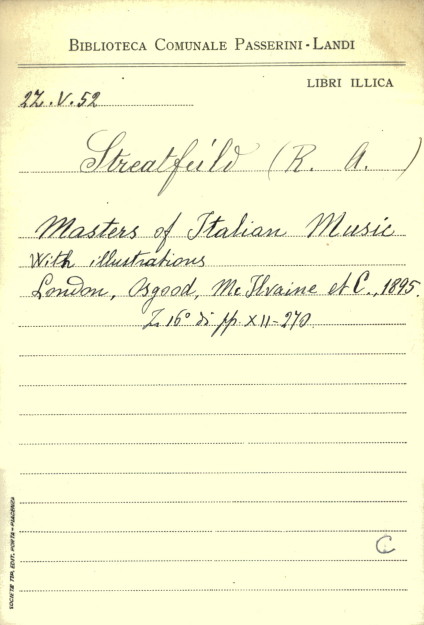 BIBLIOTECA COMUNALE PASSERINI-LANDI
LIBRI ILLICA
2Z.V.52
Streatfeild (R. A. )
Masters of Italian Music
With illustrations
London, Osgood, Mc Ilvaine et C., 1895.
Z 16° di pp. XII-270
C
SOCIETÀ TIP. EDIT. PORTA - PIACENZA